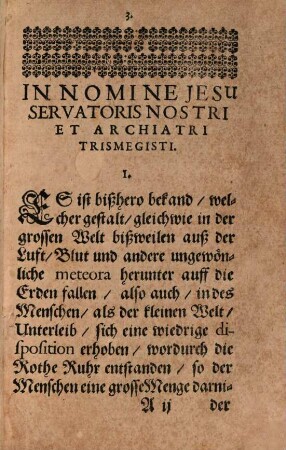 3.
IN NOMINE JESU
SERVATORIS NOSTRI
ET ARCHIATRI
TRISMEGISTI.
I.
ES ist bißhero bekand / wel-
cher gestalt / gleichwie in der
grossen Welt bißweilen auß der
Luft / Blut und andere ungewön-
liche meteora herunter auff die
Erden fallen / also auch / in des
Menschen / als der kleinen Welt /
Unterleib / sich eine wiedrige di-
sposition erhoben / wordurch die
Rothe Ruhr entstanden / so der
Menschen eine grosse Menge darni-
A ij der